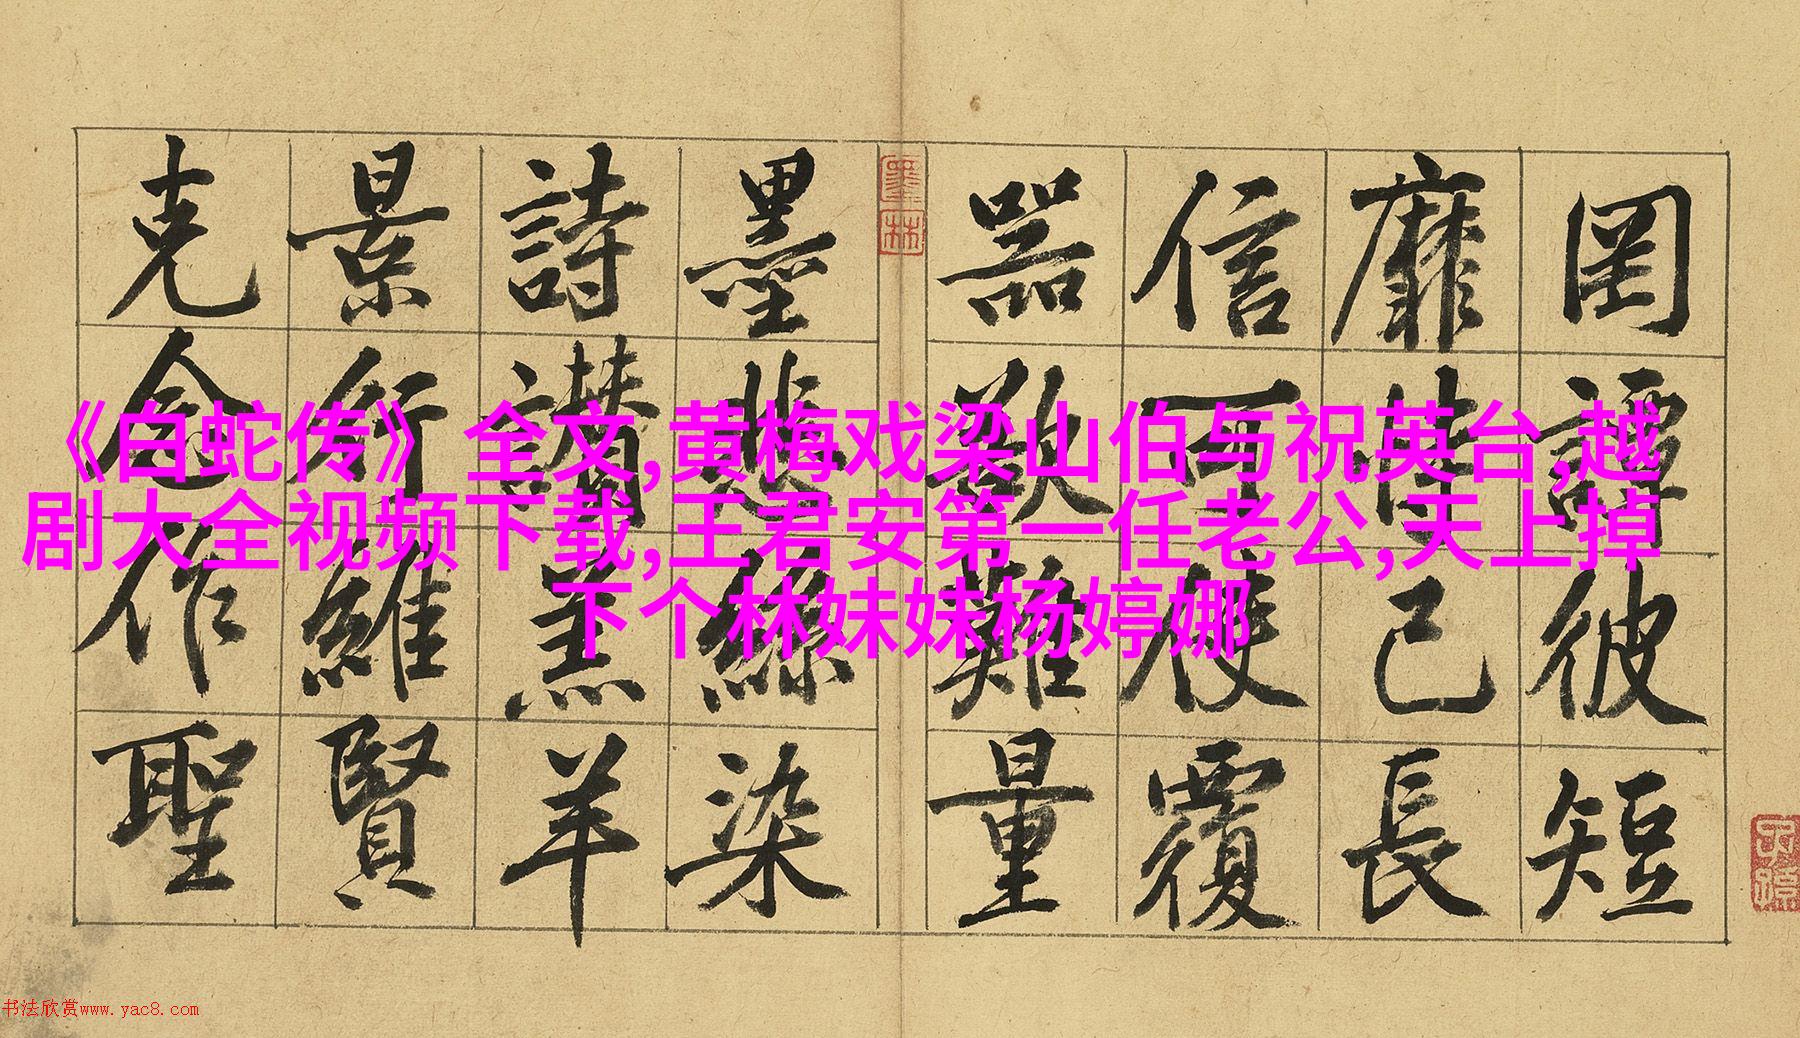 罔譚彼短
靡恃己長
信可使覆
器欲難量
墨林
墨悲絲染
詩讚羔羊
景行維賢
克念作聖
《白蛇传》全文,黄梅戏梁山伯与祝英台,越
剧大全视频下载,王君安第一任老公,天上掉
下个林妹妹杨婷娜
书法欣赏www.yac8.com